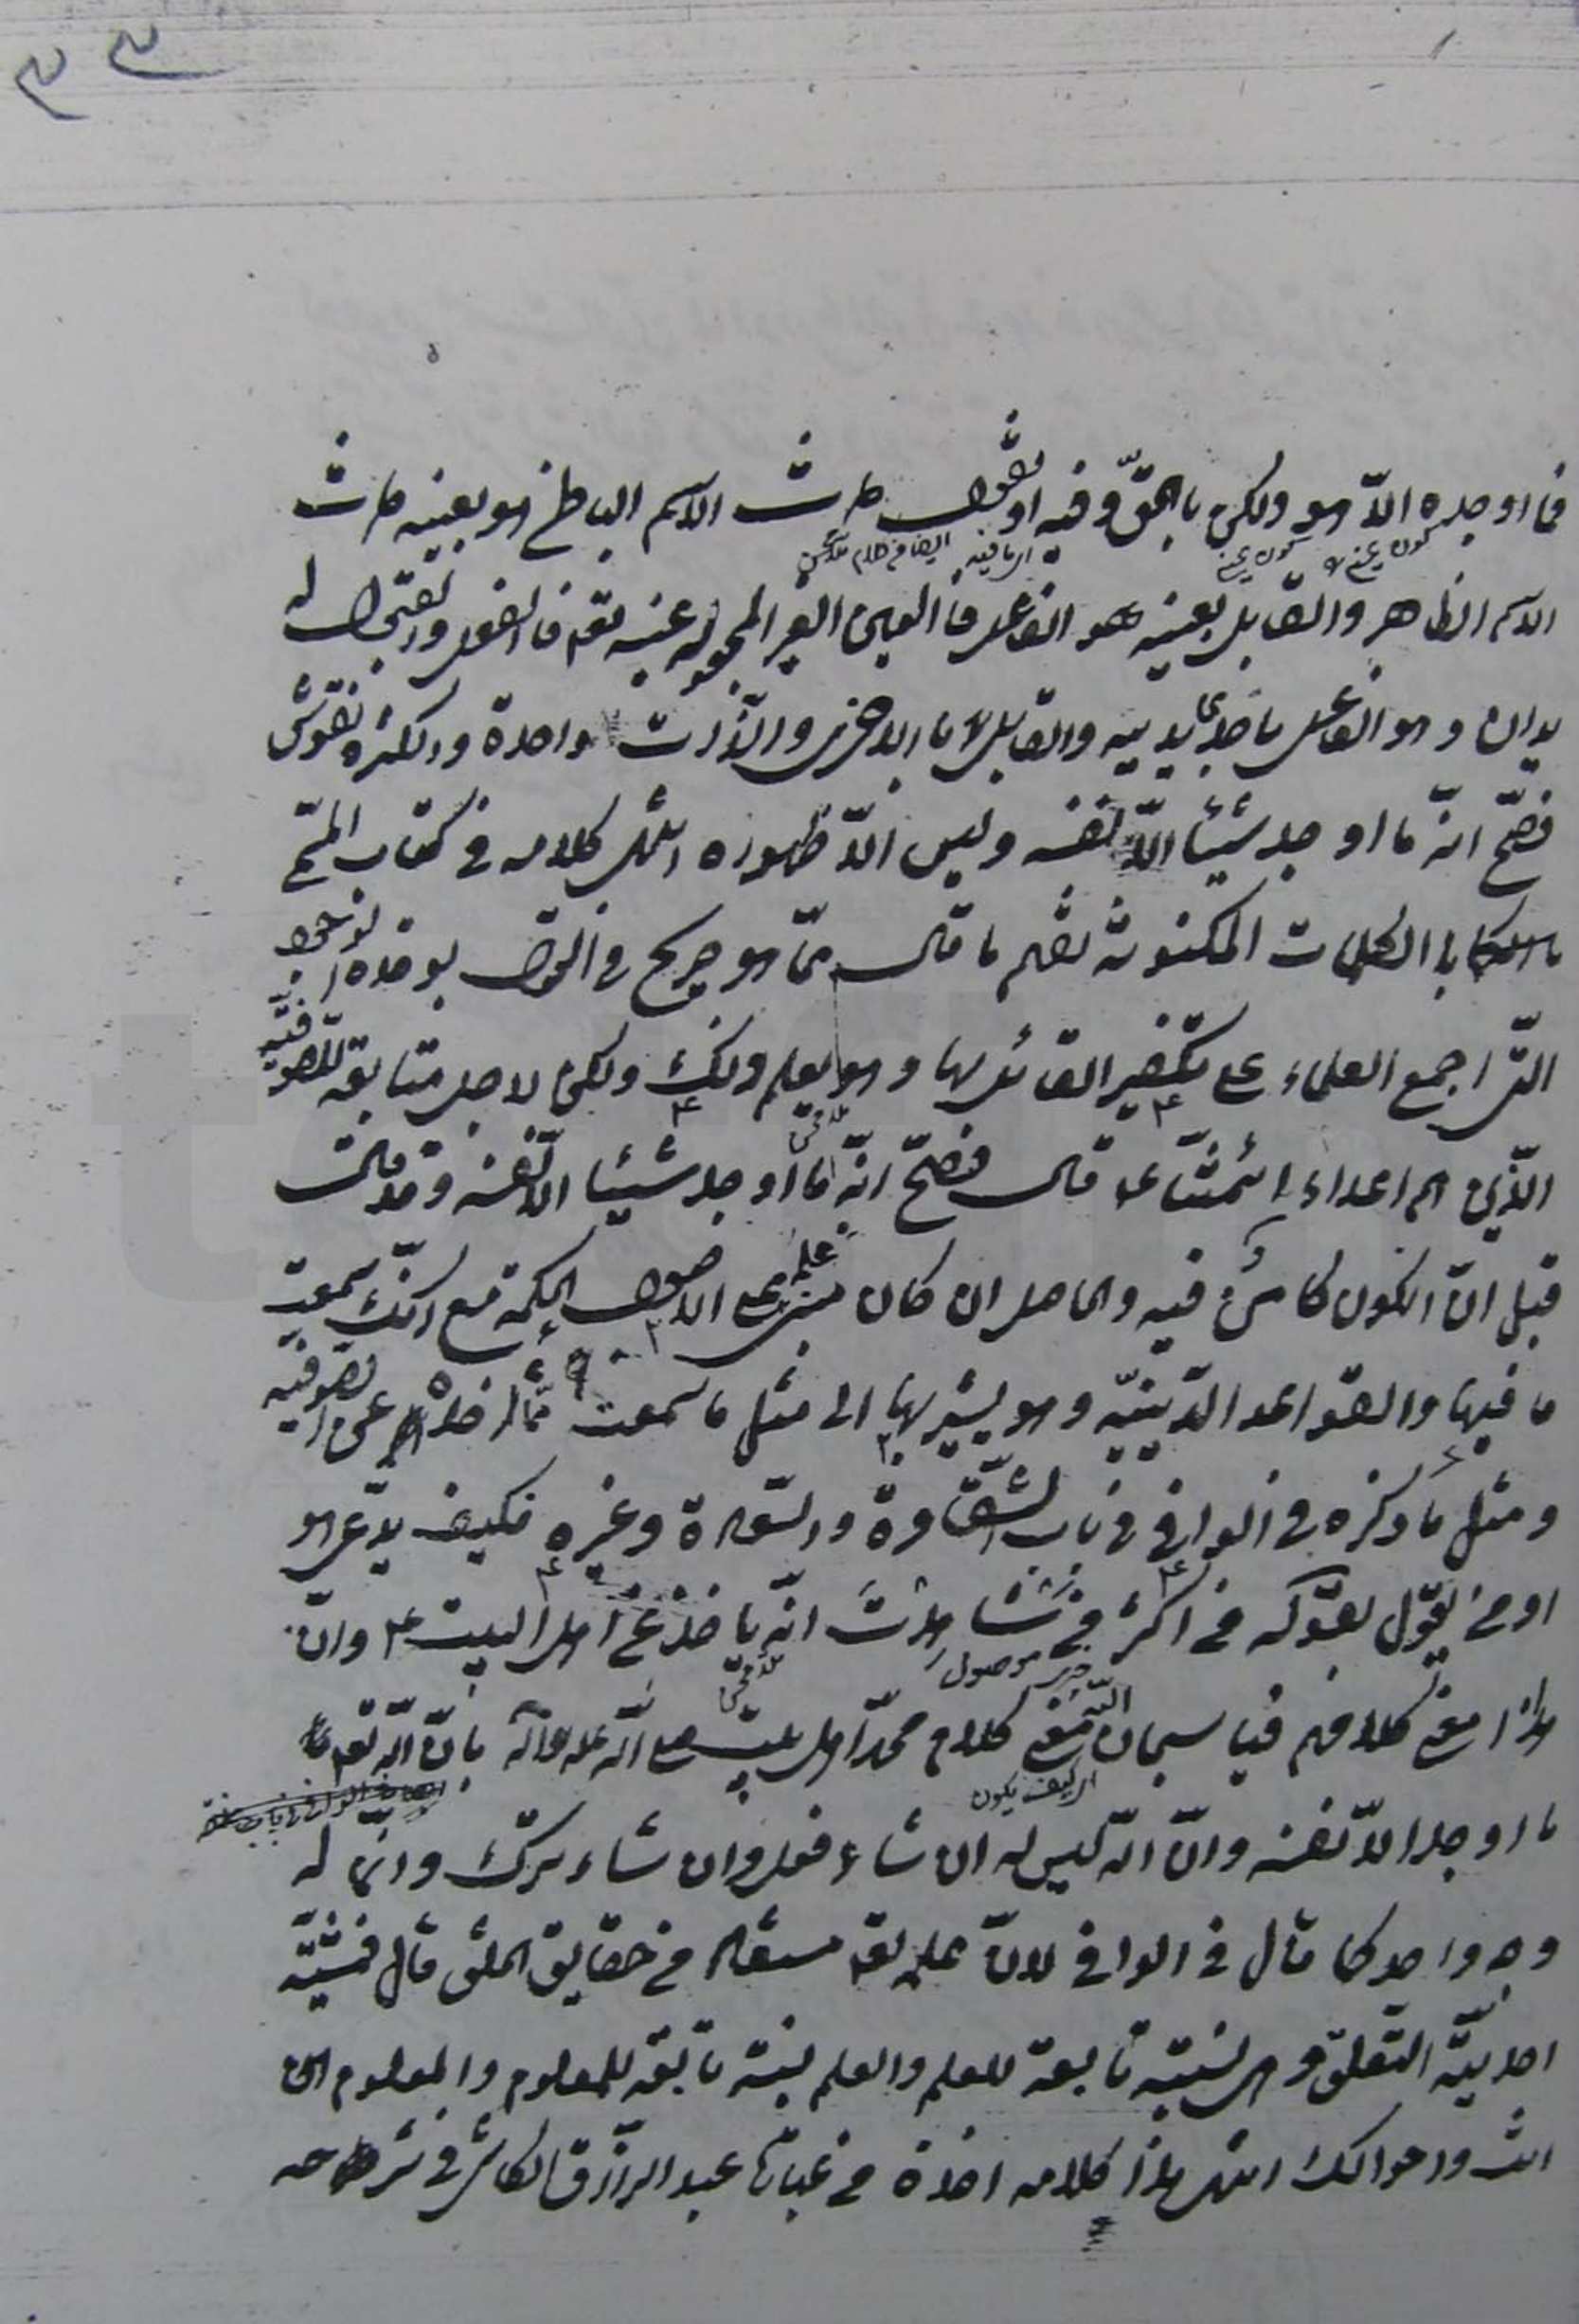 فما اوجده الّا هو ولكن بالحقّ وفيه او نقول ذات الاسم الباطن هو بعينه ذات
الاسم الظاهر والقابل بعينه هو الفاعل فالعين الغير المجعولة عينه تعم فالفعل والقبول له
يدان وهو الفاعل باحدى يديه والقابل بالاخرى والذات واحدة والكثرة نقوش
فصحّ انّه ما اوجد شيئا الّا نفسه وليس الّا ظهوره انتهى كلامه في كتاب المسمّى
بالكلمات المكنونة فافهم ما قال ممّا هو صريح في القول بوحدة الوجود
التى اجمع العلماء على تكفير القائل بها وهو يعلم ذلك ولكن لاجل متابعة الصوفيّة
الّذين هم اعداء ائمّتنا ع قال فصحّ انّه ما اوجد شيئا الّا نفسه وقد قال
قبل انّ الكون كامن فيه والحاصل ان كان مبنى علم الاصول الحكمة مع انّك سمعت
ما فيها والقواعد الدّينيّة وهو يشير بها الى مثل ما سمعت ممّا اخذه عن الصّوفيّه
ومثل ما ذكره في الوافي في باب الشّقاوة والسّعادة وغيره فكيف يدّعى هو
او من يقول بقوله في اكثر من انّه ياخذ عن اهل البيت ع وانّ
هذا معنى كلامهم فيا سبحان الله من معنى كلام محمّد اهل بيته صلى الله عليه وآله بانّ الله تعم
اى كيف يكون
ما اوجد الّا نفسه وانّ الله ليس له ان شاء فعل وان شاء ترك وانّما له
وجه واحد كما قال في الوافي لانّ علمه تعم مستفاد من حقايق الخلق قال فمشيّته
احديّة التعلّق وهى نسبة تابعة للعلم والعلم نسبة تابعة للمعلوم والمعلوم انت
واحوالك انتهى هذا كلامه اخذه من عبارة عبد الرزاق الكاشى في شرحه